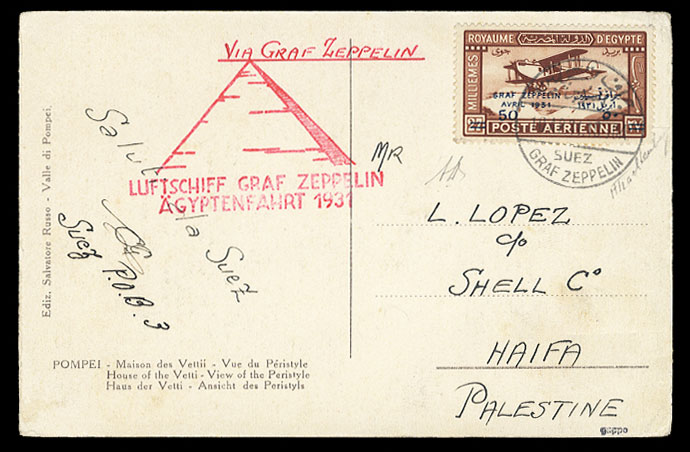 VIA GRAF ZEPPELIN
ROYAUME D'EGYPTE
الدولة المصرية
MILLIEMES
GRAF ZEPPELIN
AVRIL 1931
50
٥٠
27
POSTE AÉRIENNE
SUEZ
GRAF ZEPPELIN
LUFTSCHIFF GRAF ZEPPELIN
ÄGYPTENFAHRT 1931
Salut
via Suez
P.O.B. 3
Suez
MR
L. LOPEZ
c/o
SHELL Co
HAIFA
PALESTINE
guppo
Ediz. Salvatore Russo - Valle di Pompei.
POMPEI - Maison des Vettii - Vue du Péristyle
House of the Vetti - View of the Peristyle
Haus der Vetti - Ansicht des Peristyls